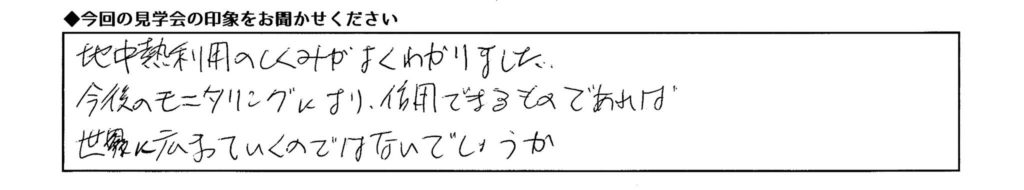 ◆今回の見学会の印象をお聞かせください
地中熱利用のしくみがよくわかりました.
今後のモニタリングにより、信用できるものであれば
世界に広まっていくのではないでしょうか